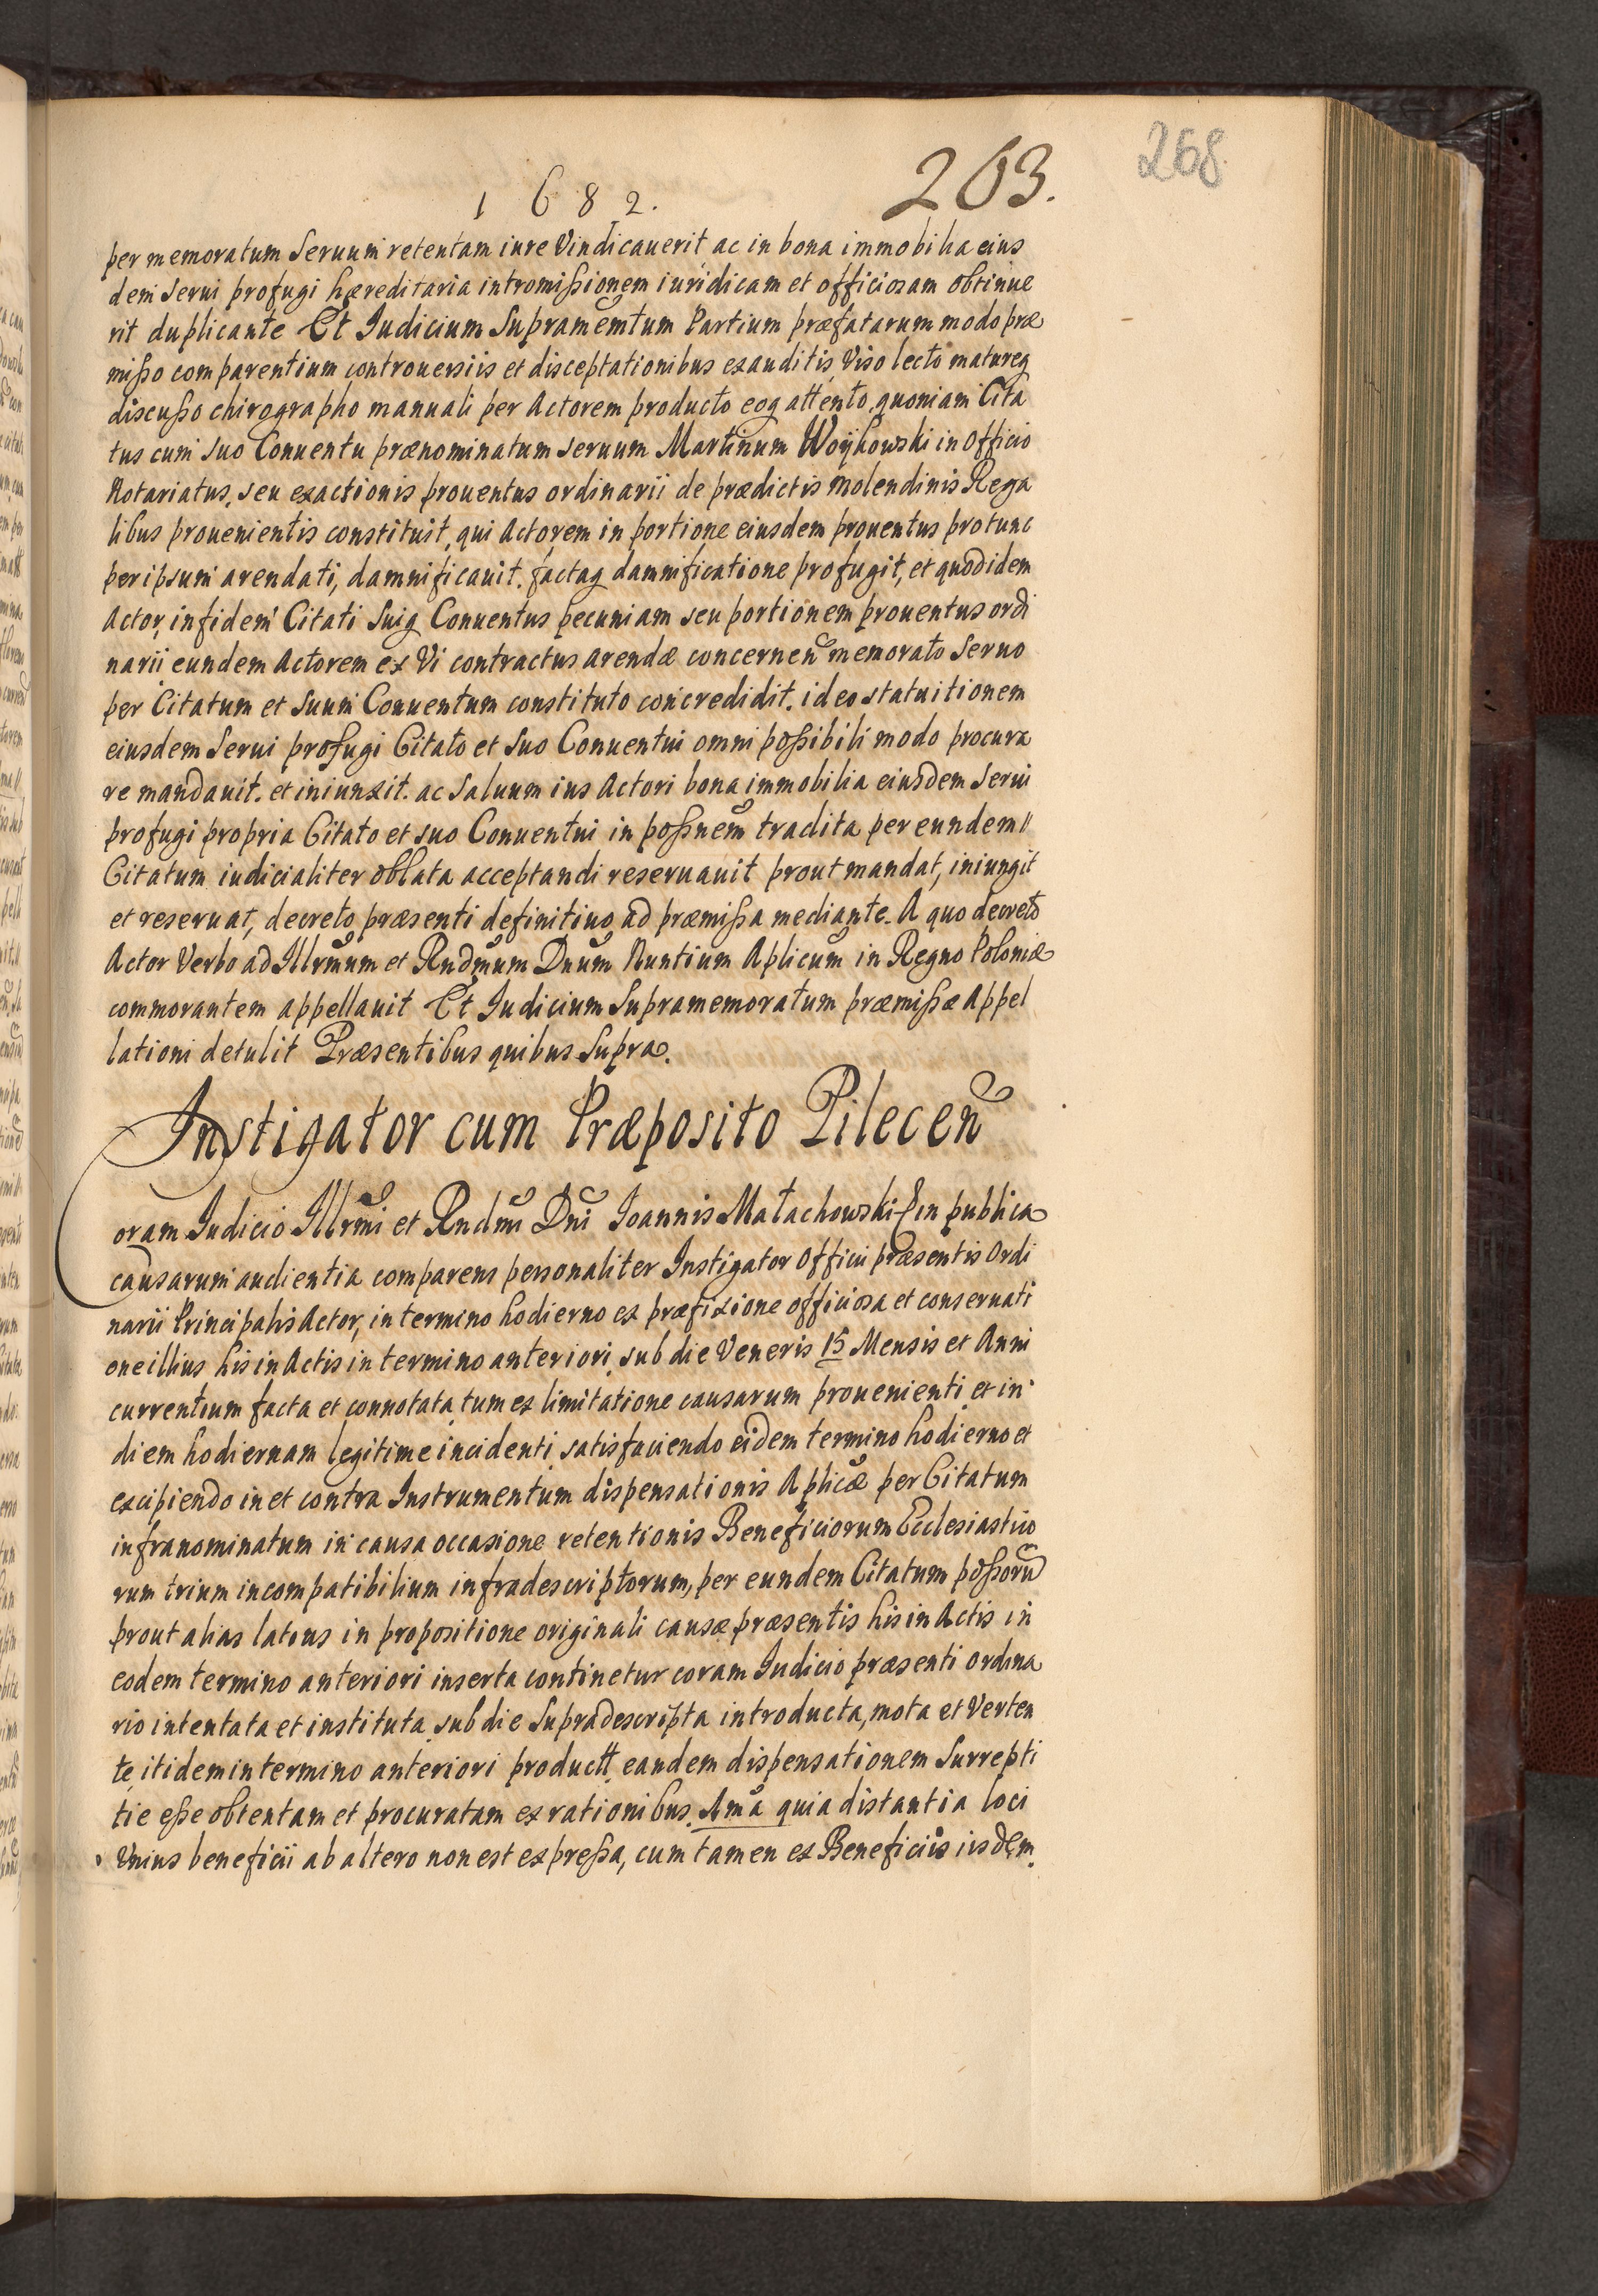 268
1 6 8 2. 263.
per memoratum Seruum retentam iure Vindicauerit ac in bona immobilia eius
dem serui profugi hæreditaria intromißionem iuridicam et officiosam obtinue
rit duplicante Et Iudicium Supramemtum Partium præfatarum modo præ
mißo comparentium controuersiis et disceptationibus exauditis Viso lecto matureq
discußo chirographo manuali per Actorem producto eoq attento, quoniam Cita
tus cum suo Conuentu prænominatum seruum Martinum Woÿkowski in officio
Notariatus, seu exactionis prouentus ordinarii de prædictis molendinis Rega
libus prouenientis constituit, qui Actorem in portione eiusdem prouentus protunc
per ipsum arendati, damnificauit. factaq damnificatione profugit, et quod idem
Actor, in fidem Citati Suiq Conuentus pecuniam seu portionem prouentus ordi
narii eundem Actorem ex Vi contractus arendæ concernen memorato Seruo
per Citatum et suum Conuentum constituto concredidit. ideo statuitionem
eiusdem Serui profugi Citato et suo Conuentui omni poßibili modo procura
re mandauit. et iniunxit. ac Saluum ius Actori bona immobilia eiusdem Serui
profugi propria Citato et suo Conuentui in poßnem tradita per eundem //
Citatum iudicialiter oblata acceptandi reseruauit prout mandat, iniungit
et reseruat, decreto præsenti definitiuo ad præmißa mediante. A quo decreto
Actor Verbo ad Illrmum et Rndmum Dnum Nuntium Aplicum in Regno Poloniæ
commorantem appellauit Et Iudicium Supramemoratum præmißæ Appel
lationi detulit Præsentibus quibus Supra.
Instigator cum Præposito Pilecen
Coram Iudicio Illrmi et Rndmi Dni Ioannis Małachowski E in publica
causarum audientia comparens personaliter Instigator Officii præsentis Ordi
narii Principalis Actor, in termino hodierno ex præfixione officiosa et conseruati
one illius his in Actis in termino anteriori sub die Veneris 15 Mensis et Anni
currentium facta et connotata tum ex limitatione causarum prouenienti et in
diem hodiernam legitime incidenti satisfaciendo eidem termino hodierno et
excipiendo in et contra Instrumentum dispensationis Aplicæ per Citatum
infranominatum in causa occasione retentionis Beneficiorum Ecclesiastico
rum trium incompatibilium infradescriptorum, per eundem Citatum poßorum
prout alias latius in propositione originali causæ præsentis his in Actis in
eodem termino anteriori inserta continetur coram Iudicio præsenti ordina
rio intentata et instituta, sub die supradescripta introducta, mota et Verten
te, itidem in termino anteriori productt eandem dispensationem Surrepti
tie eße obtentam et procuratam ex rationibus. Ama quia distantia loci
Vnius beneficii ab altero non est expreßa, cum tamen ex Beneficiis iisdem